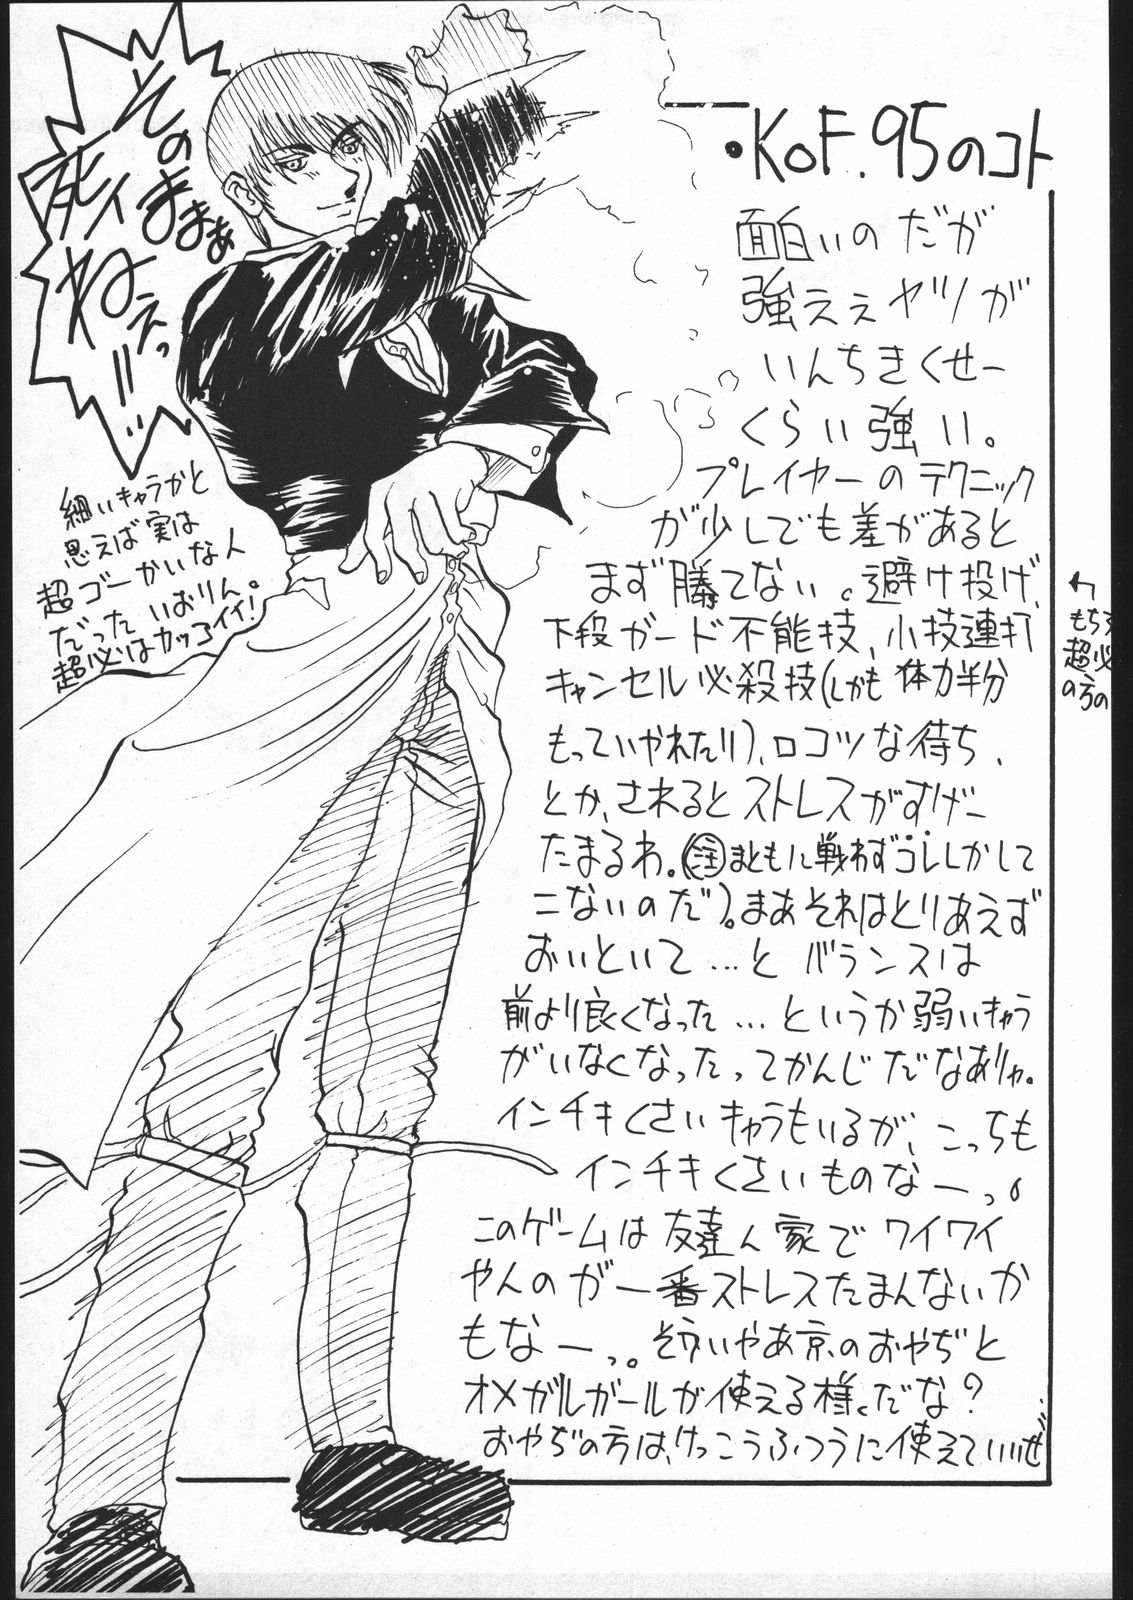 そのまままぁ
死ィねぇっ!!…
細いキャラかと
思えば実は
超ゴーかいな人
だったいおりん。
超必はカッコイイ!
・KOF.95のコト
面白いのだが
強ええヤツが
いんちきくせー
くらい強い。
プレイヤーのテクニック
が少しでも差があると
まず勝てない。避け投げ、
下段ガード不能技、小技連打
キャンセル必殺技(しかも体力半分
もっていかれたり)、ロコツな待ち、
とか、されるとストレスがすげー
たまるわ。(注まともに戦わずコレしかして
こないのだ)。まあそれはとりあえず
おいといて…と バランスは
前より良くなった…というか弱いキャラ
がいなくなったってかんじだなありゃ。
インチキくさいキャラもいるが、こっちも
インチキくさいものなーっ。
このゲームは友達ん家でワイワイ
やんのが一番ストレスたまんないか
もなーっ。そういやあ京のおやぢと
オメガルガールが使える様だな?
おやぢの方は、けっこうふつうに使えていいぜ…
↰
もちろ
超必
の方の